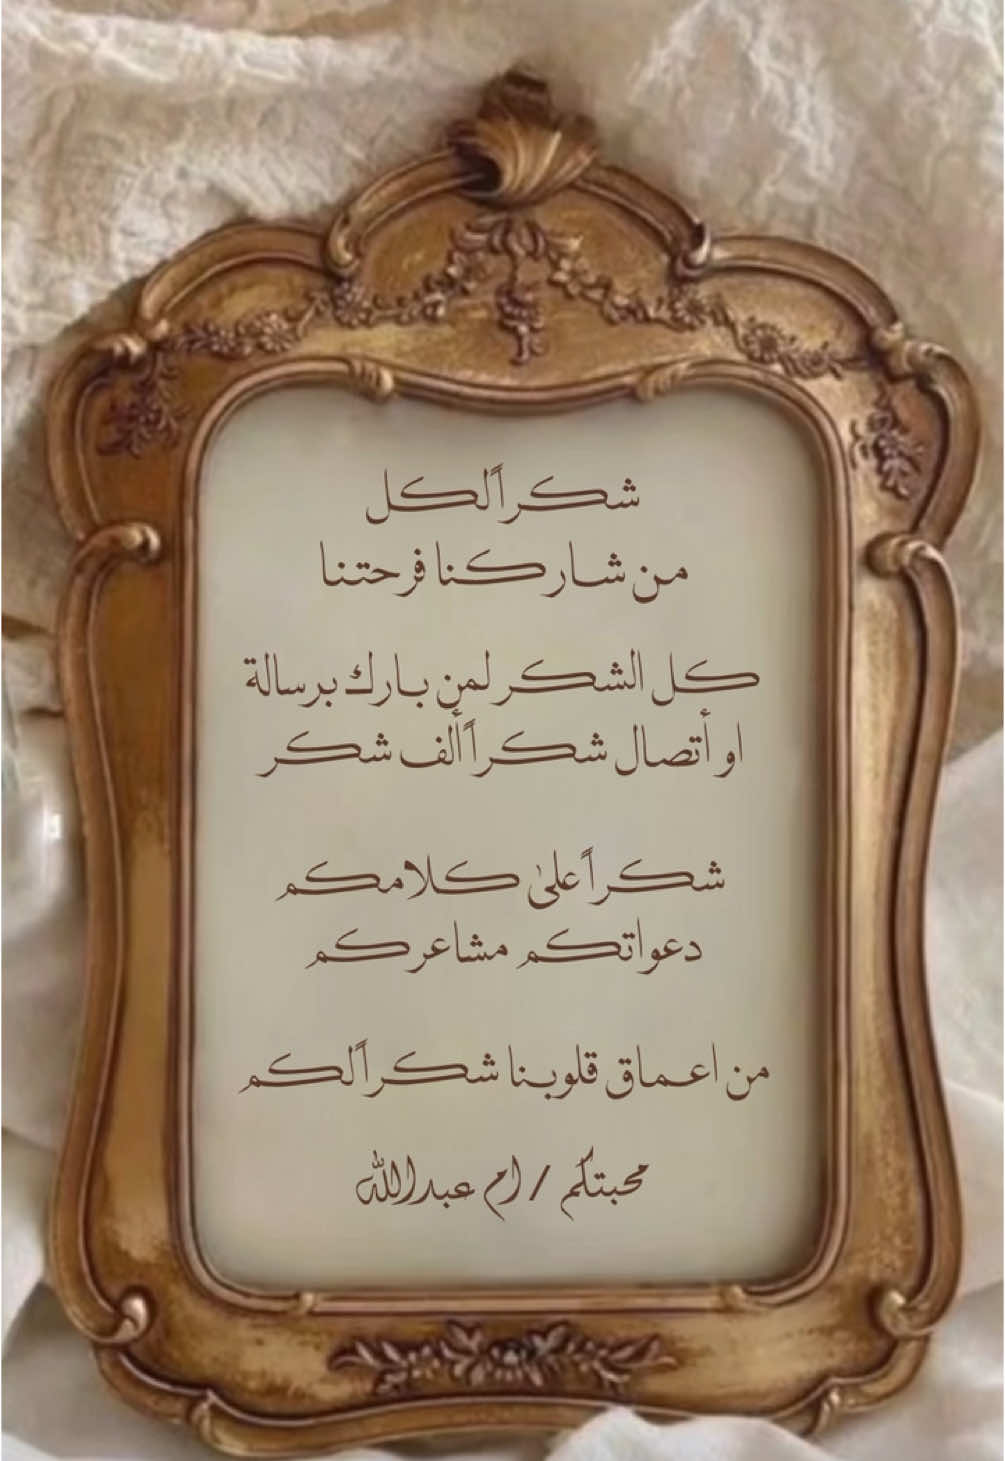 شكراً لكل
من شاركنا فرحتنا
كل الشكر لمن بارك برسالة
او أتصال شكراً ألف شكر
شكراً على كلامكم
دعواتكم مشاعركم
من اعماق قلوبنا شكراً لكم
محبتكم / ام عبدالله